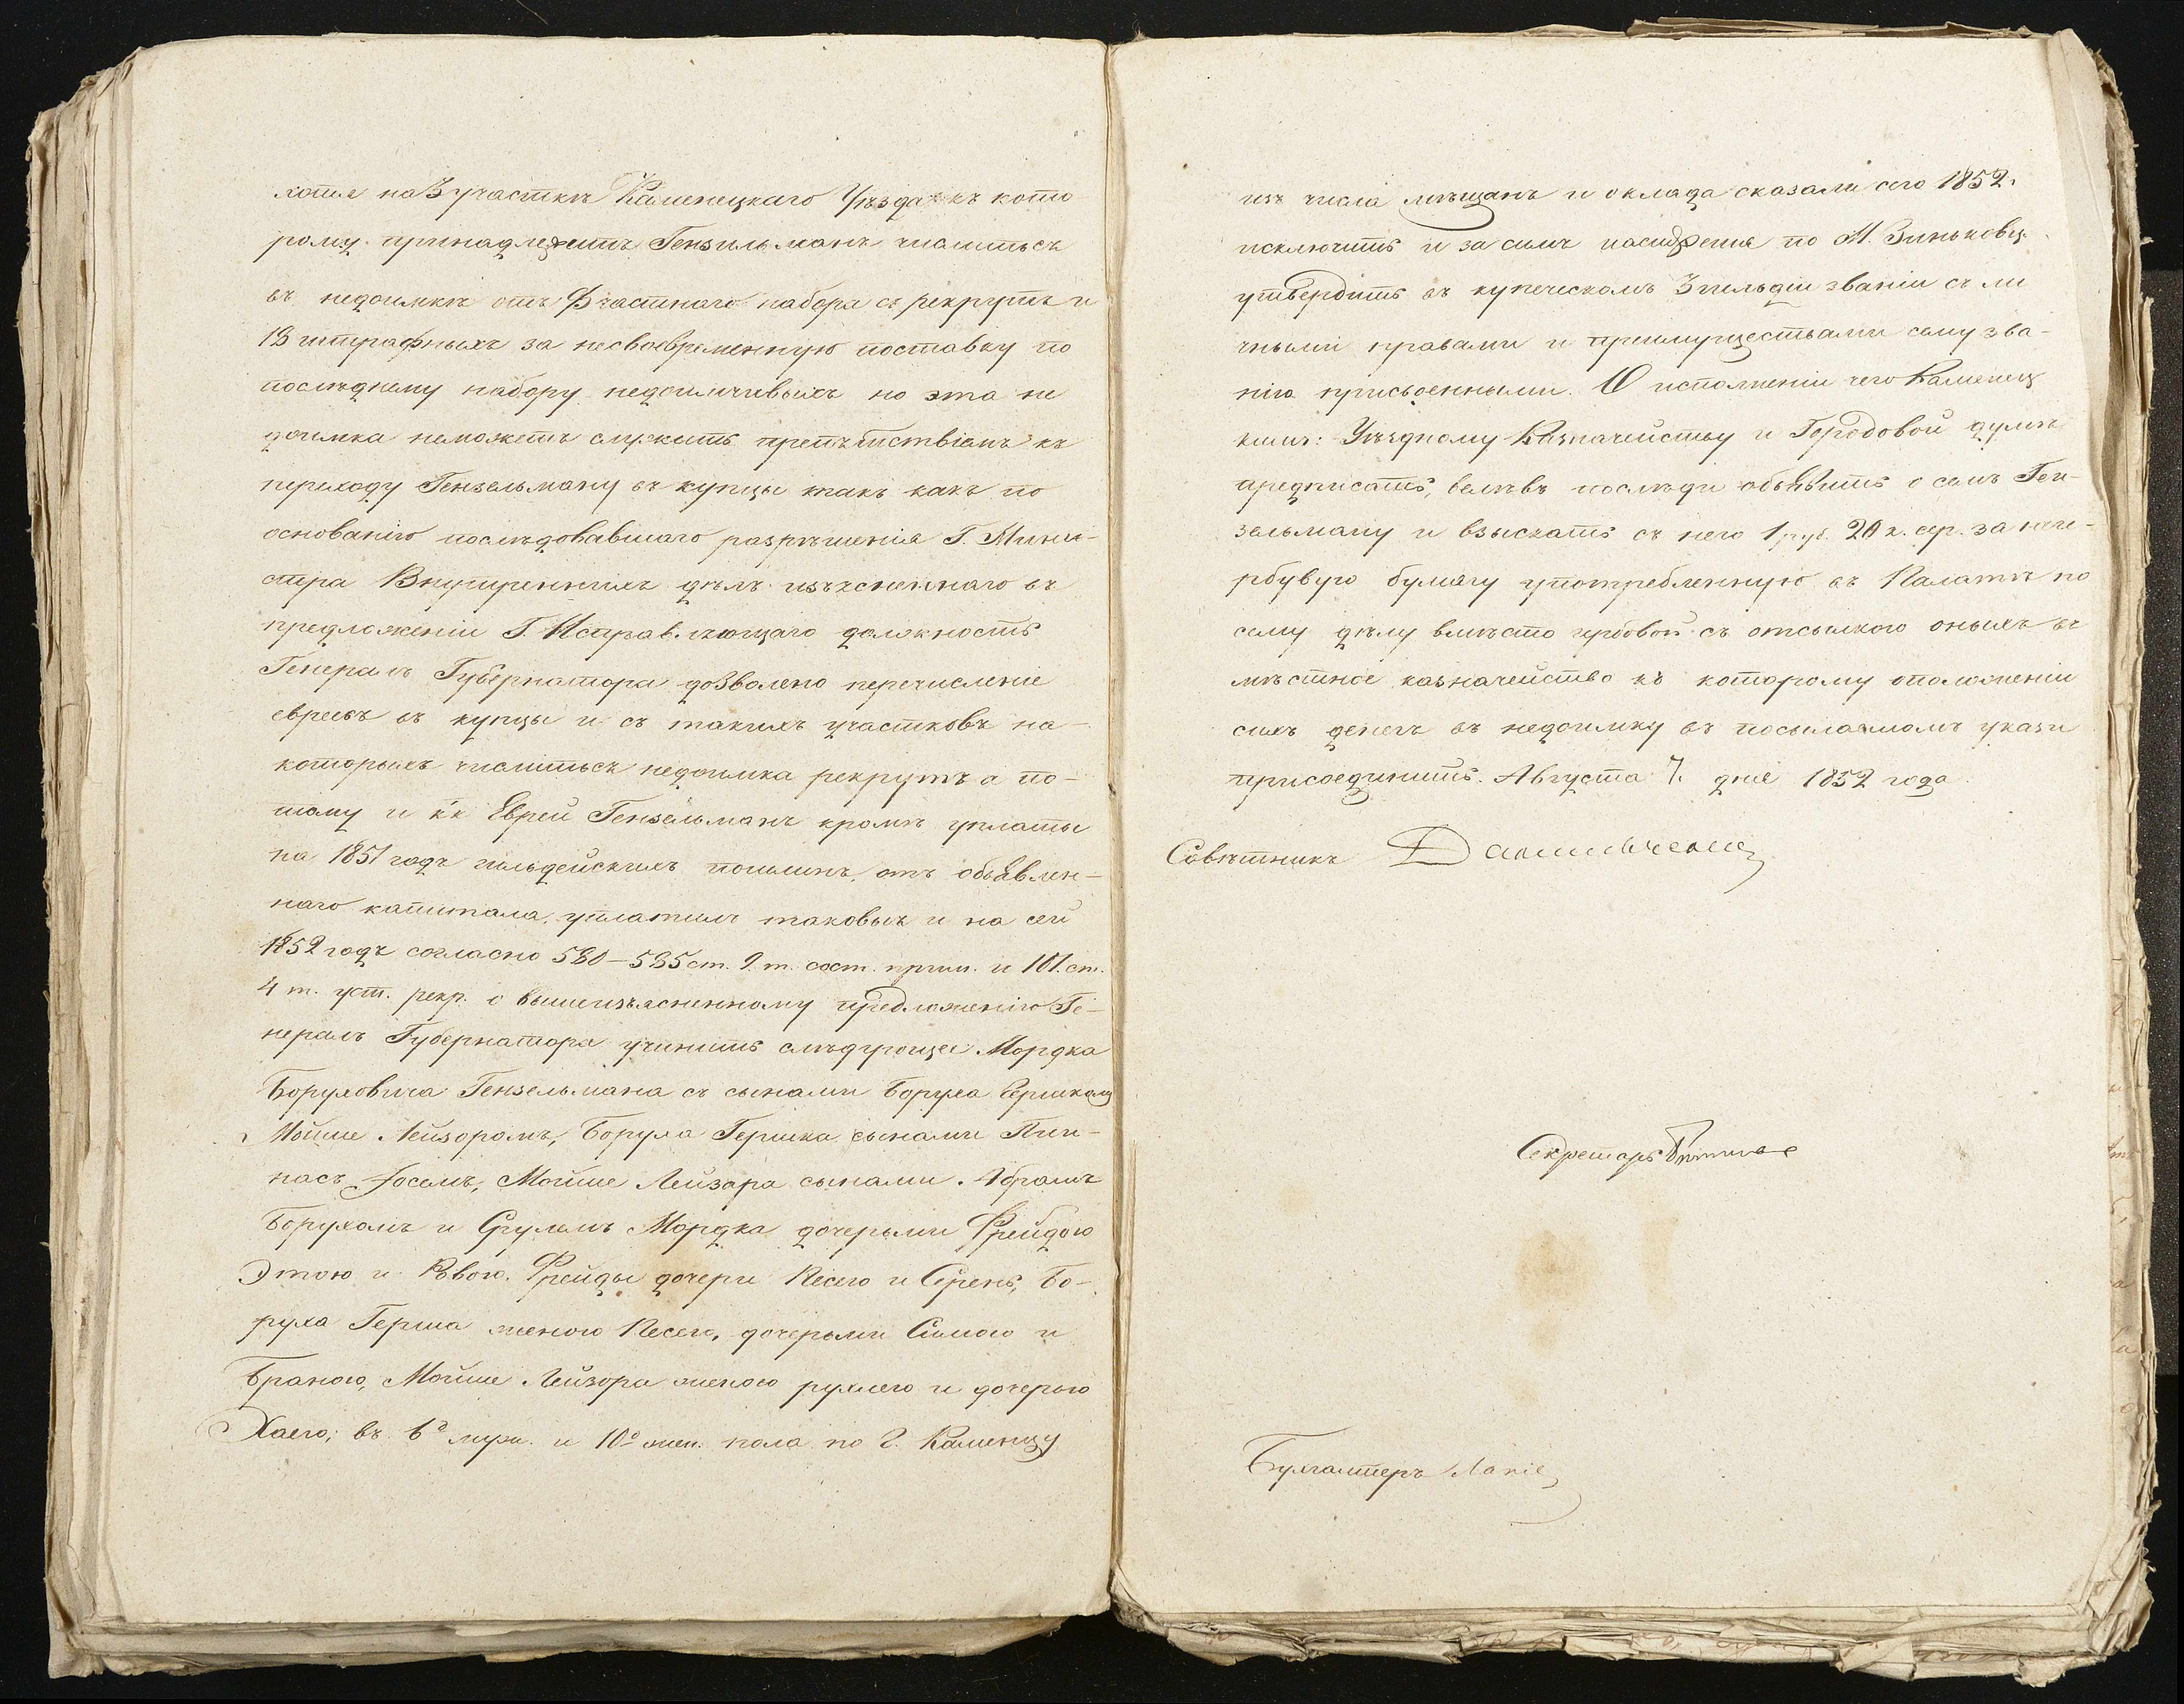 хотя на 3 участкѣ Каменецкаго Уѣзда къ кото
рому принадлежитъ Гензильманъ числитьсѧ
въ недоимкѣ отъ частнаго набора рекрутъ и
13 штрафныхъ за несвоевременную поставку по
послѣднему набору недоимочныхъ но эта не
доимка неможетъ служить препятствіемъ къ
переходу Гензельману въ купцы такъ какъ по
основанію послѣдовавшаго разрѣшенія Г. Мини-
стра Внутреннихъ дѣлъ изъясненнаго въ
предложеніи Г. Исправ. ляющаго должность
Генералъ Губернатора дозволено перечисленіе
евреевъ въ купцы и съ такихъ участковъ на-
которыхъ числиться недоимка рекрутъ а по-
тому и к՛к Еврей Гензельманъ кромѣ уплаты
на 1851 годъ гильдейскихъ пошлинъ, отъ объявлен-
наго капитала, уплатилъ таковыя и на сей
1852 годъ согласно 580–585 ст. 9. т. сост. прим. и 101. ст.
4 т. уст. рекр. о вышеизъясненному предложенію Ге-
нералъ Губернатора учинить слѣдующее Мордка
Боруховича Гензельмана съ сынами Боруха Гершкомъ
Мойше Лейзоромъ, Боруха Гершка сынами Пин-
насъ Іосемъ, Мойше Лейзора сынами Абрамъ
Борухомъ и Срулемъ Мордка дочерьми Фрейдою
Этою и Ривою. Фрейды дочери Песею и Сренъ, Бо-
руха Герша женою Песею, дочерьми Симою и
Браною, Мойше Лейзора женою рухлею и дочерью
Хаею; въ 6ᵈ муж. и 10ᵈ жен. пола по г. Каменцу
изъ числа мѣщанъ и оклада сказали сего 1852.
исключить и за симъ по М. Зиньковц.
утвердить въ купеческомъ 3 гильдіи званіи съ ли
чными правами и преимуществами сему зва-
нію присвоенными. О исполненіи чего Каменец
кимъ: Уѣздному Казначейству и Городовой думѣ
предписать, велѣвъ послѣди объявить о семъ Ген-
зельману и взыскать съ него 1 руб. 20 к. сер. за неге-
рбувую бумагу употребленную въ Палатѣ по
сему дѣлу вмѣсто гербовой съ отсылкою оныхъ въ
мѣстное казначейство къ которому оположеніи
сихъ денегъ въ недоимку въ посылаемомъ указѣ
присоединить. Августа 7. дня 1852 года.
Совѣтникъ
Секретарь
Бухгалтеръ